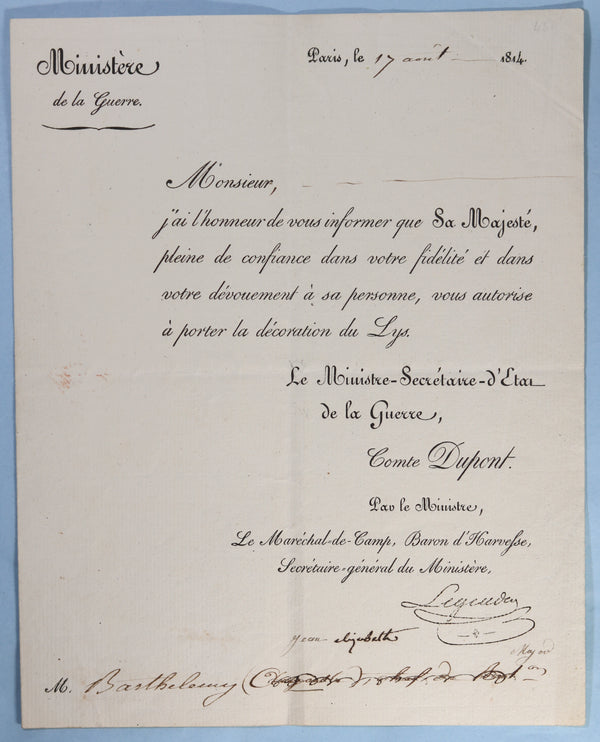 Ministère
de la Guerre.
Paris, le 17 août 1814.
Monsieur,
j'ai l'honneur de vous informer que Sa Majesté,
pleine de confiance dans votre fidélité et dans
votre dévouement à sa personne, vous autorise
à porter la décoration du Lys.
Le Ministre-Secrétaire-d'Etat
de la Guerre,
Comte Dupont.
Par le Ministre,
Le Maréchal-de-Camp, Baron d'Harvesse,
Secrétaire-général du Ministère,
jean elizabeth
Major
M. Barthelemy